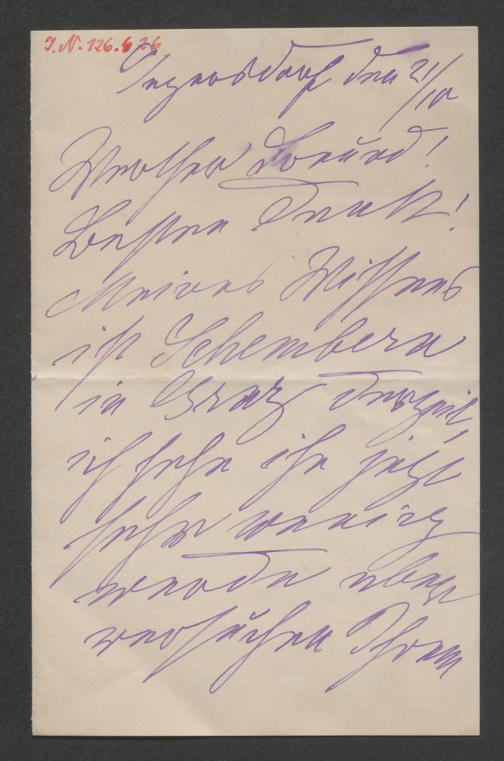 J.N. 126.676
Inzersdorf den 21/10
Werther Freund!
Besten Dank!
Meines Wissens
ist Schembera
in Graz derzeit,
ich sehe ihn jetzt
sehr wenig
werde aber
versuchen Ihrem